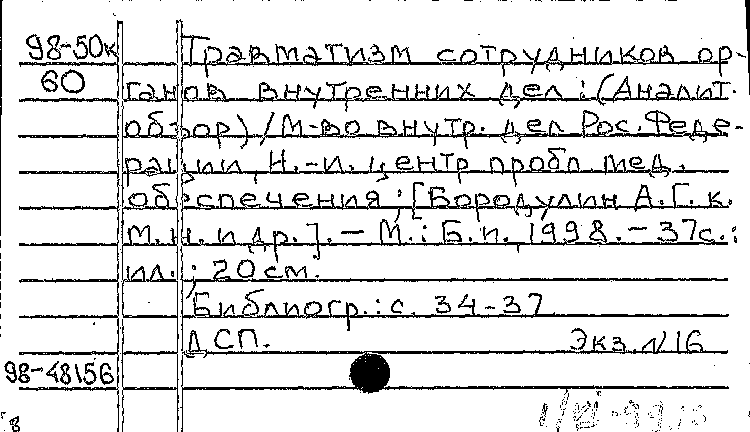 98-50к Травматизм сотрудников ор-
60 ганов внутренних дел : (Аналит.
обзор) / М-во внутр. дел Рос. Феде-
рации, Н.-и. центр пробл мед.
обеспечения ; [Бородулин А.Г. к.
м.н. и др.]. – М. : Б.и., 1998. – 37с. :
ил. ; 20 см.
Библиогр.: с. 34-37
ДСП. Экз. N 16
98-48156
8